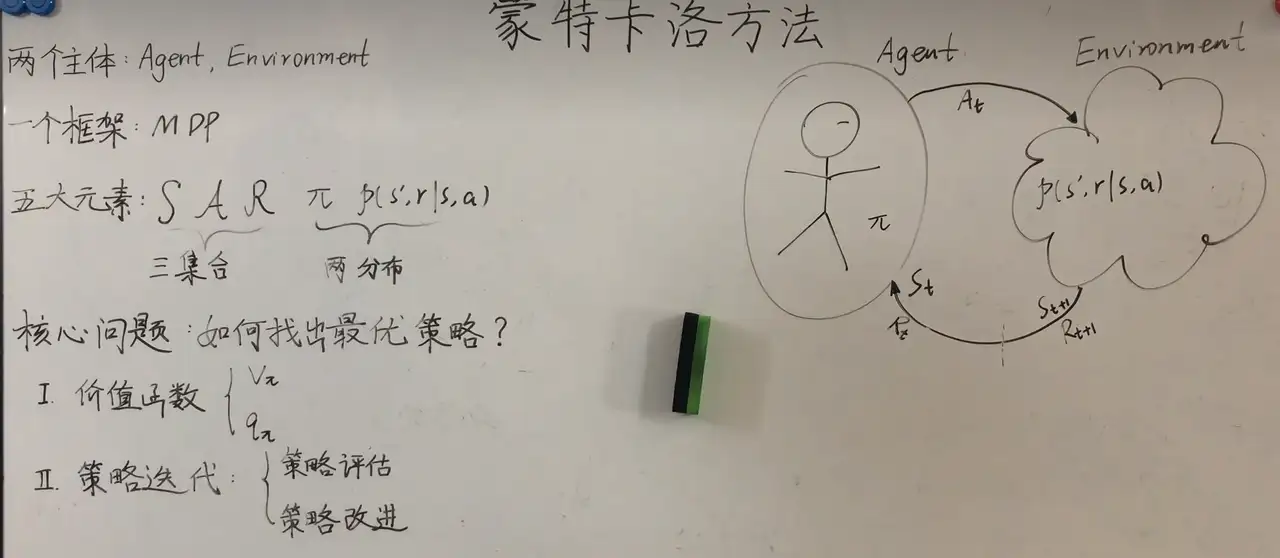 蒙特卡洛方法
两个主体：Agent, Environment
一个框架：MDP
五大元素：S A R π p(s',r|s,a)
三集合 两分布
核心问题：如何找出最优策略？
I. 价值函数 { Vπ
qπ
II. 策略迭代： { 策略评估
策略改进
Agent Environment
At
p(s',r|s,a)
π
St
St+1
Rt+1